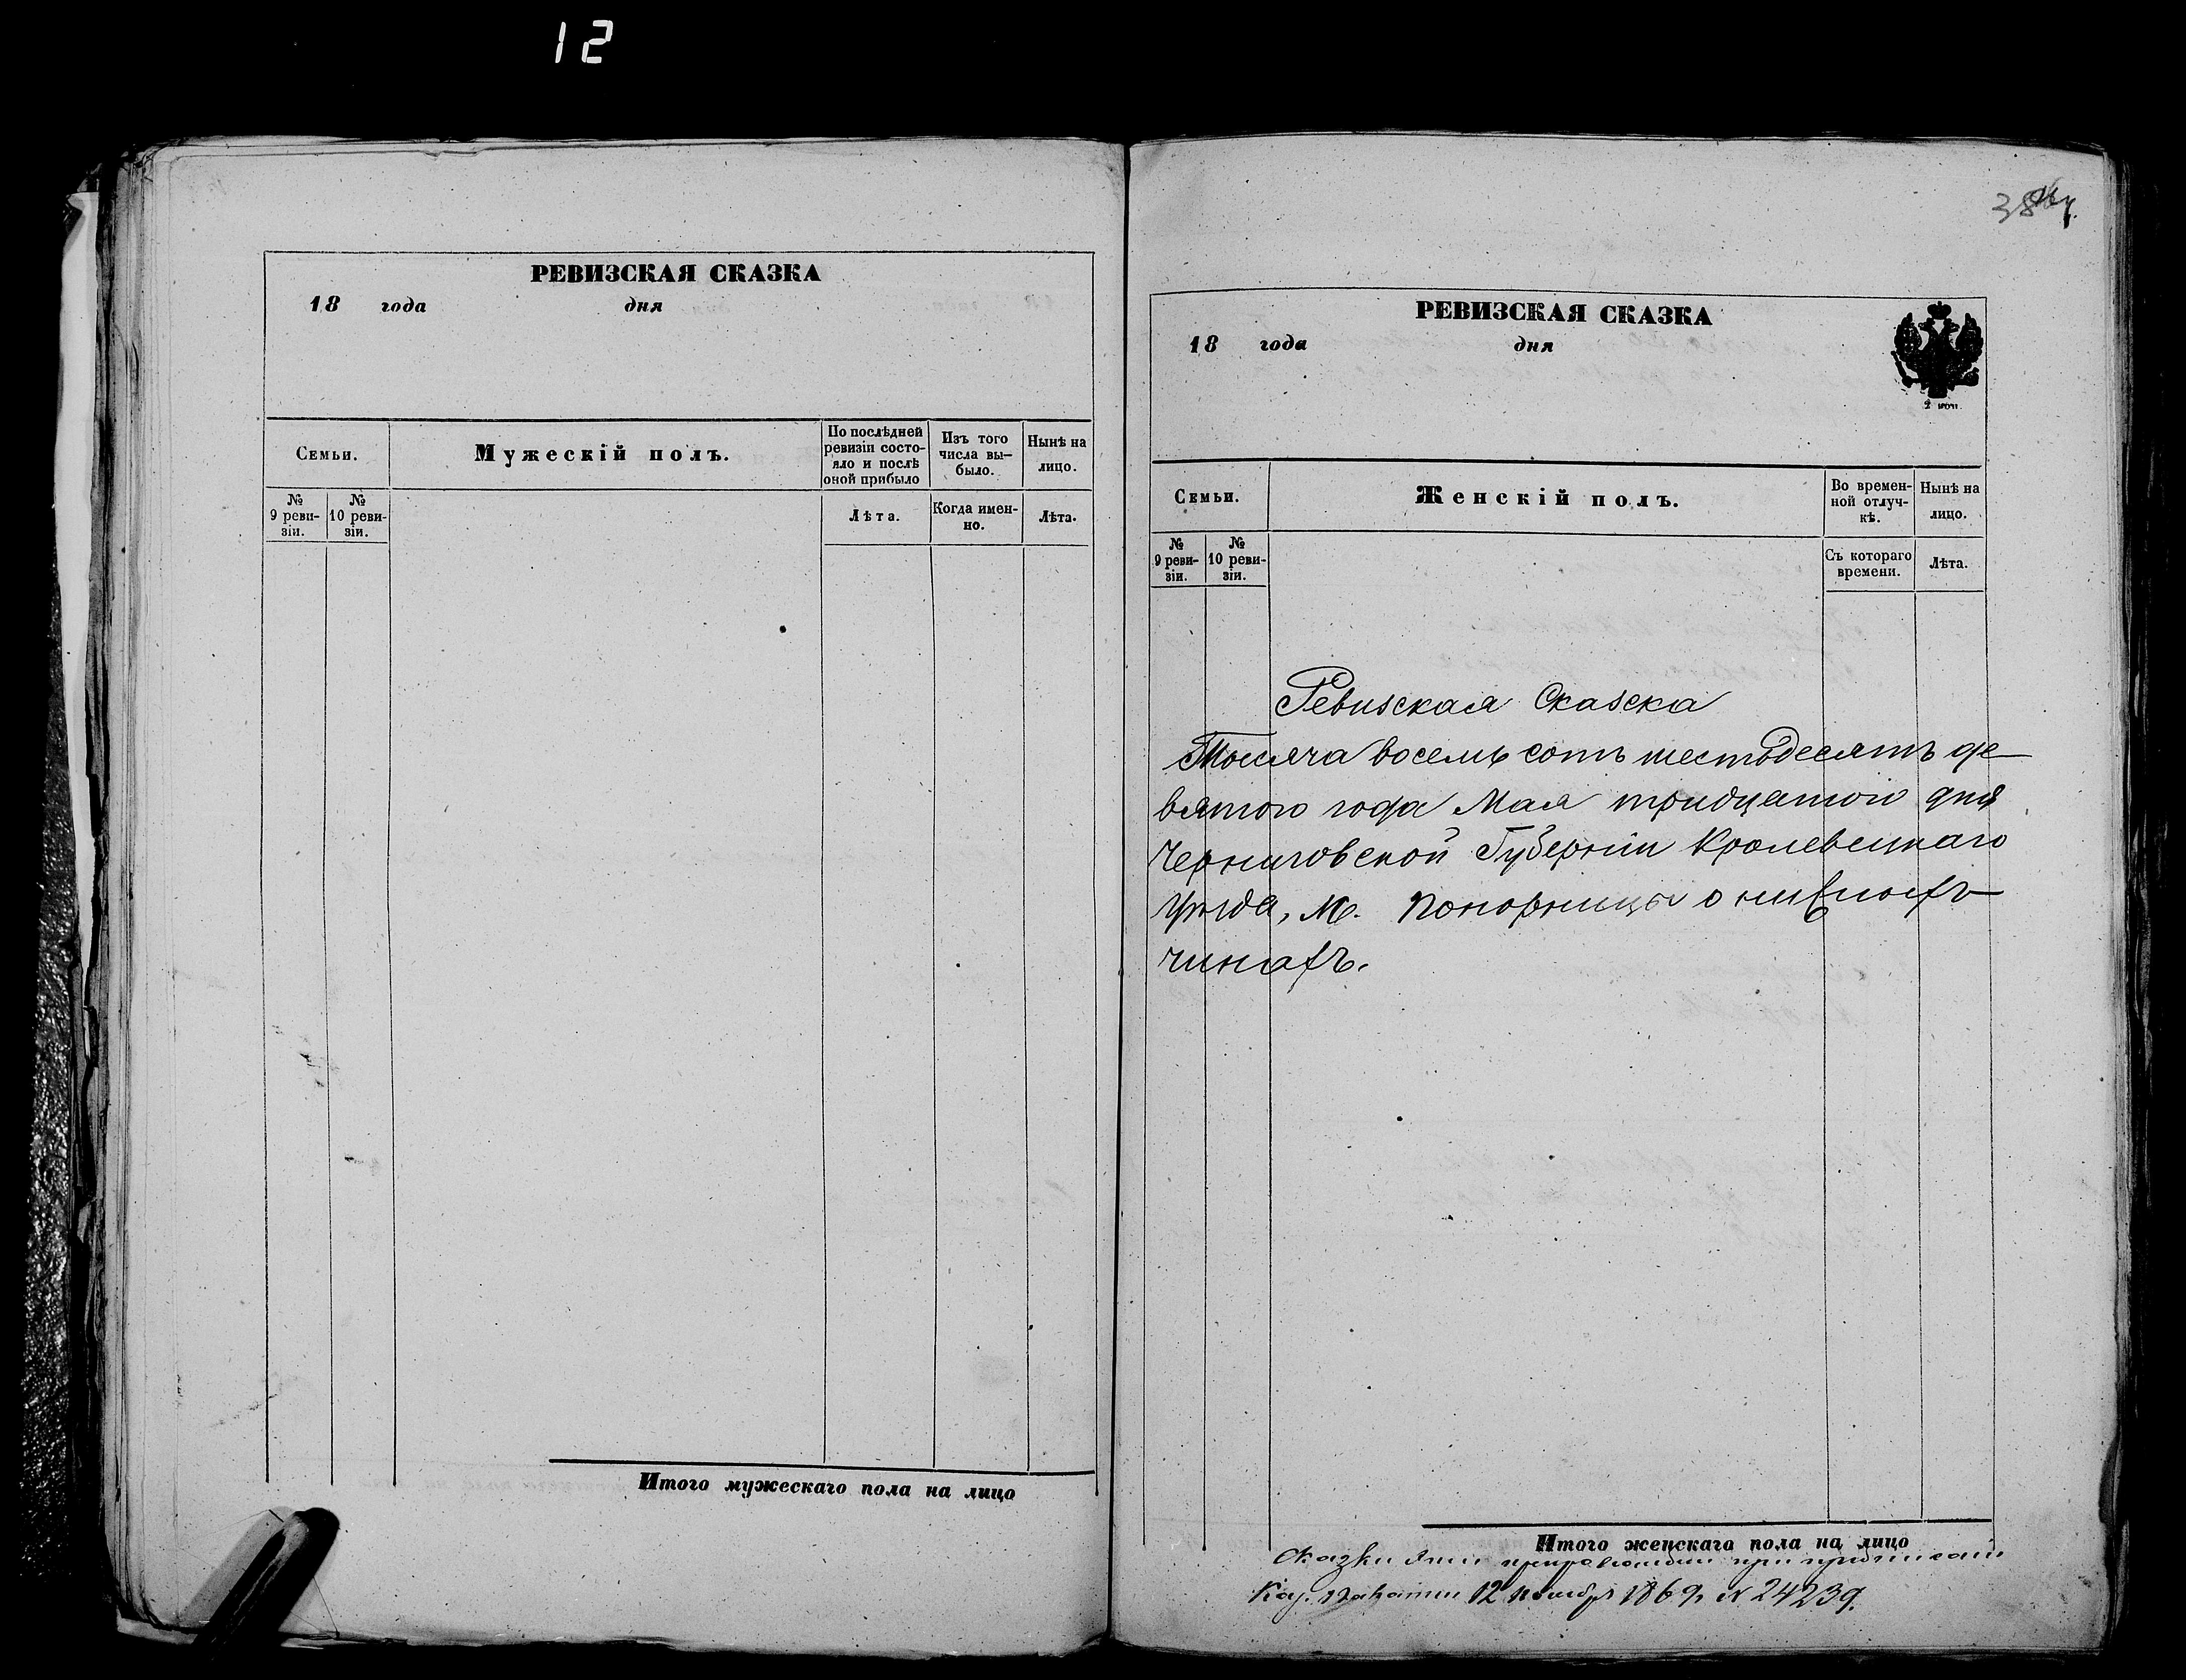 12
РЕВИЗСКАЯ СКАЗКА
18 года дня
Семьи.
Мужескій полъ.
По послѣдней ревизіи состояло и послѣ оной прибыло
Изъ того числа выбыло.
Нынѣ на лицо.
№ 9 ревизіи.
№ 10 ревизіи.
Лѣта.
Когда именно.
Лѣта.
Итого мужескаго пола на лицо
38
РЕВИЗСКАЯ СКАЗКА
18 года дня
Семьи.
Женскій полъ.
Во временной отлучкѣ.
Нынѣ на лицо.
№ 9 ревизіи.
№ 10 ревизіи.
Съ котораго времени.
Лѣта.
Ревизская Сказска
Тысяча восемь сотъ шестьдесятъ де
вятого года Мая тридцатого дня
Черниговской Губерніи Кролевецкаго
уѣзда, м. Понорницы о нивных
чинахъ.
Итого женскаго пола на лицо
Сказки эти при
Каз. Палаты 12 ноября 1869 № 24239.